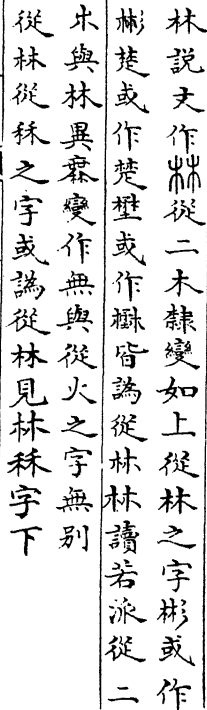 林說文作林從二木隸變如上從林之字彬或作
彬楚或作楚壄或作皆譌從𣏟𣏟讀若派從二
朩與林異變作無與從火之字無別
從林從秝之字或譌從𣏟見𣏟秝字下